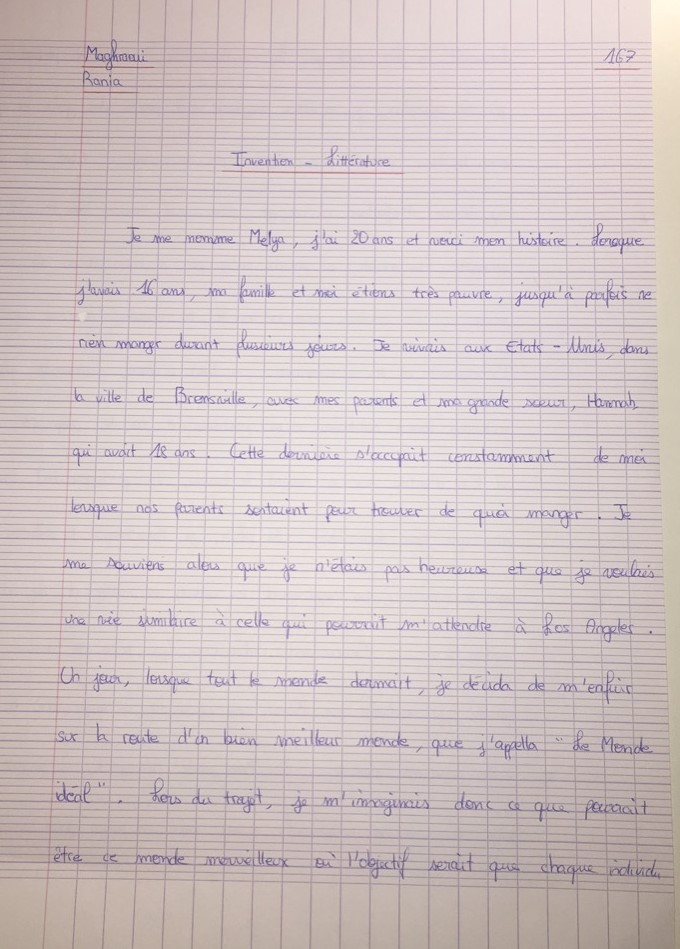 Maghraoui 167
Rania
Invention - Littérature
Je me nomme Melya, j'ai 20 ans et voici mon histoire. Lorsque
j'avais 16 ans, ma famille et moi étions très pauvre, jusqu'à parfois ne
rien manger durant plusieurs jours. Je vivais aux Etats-Unis, dans
la ville de Bronsville, avec mes parents et ma grande soeur, Hannah
qui avait 18 ans. Cette dernière s'occupait constamment de moi
lorsque nos parents sortaient pour trouver de quoi manger. Je
me souviens alors que je n'étais pas heureuse et que je voulais
une vie similaire à celle qui pourrait m'attendre à Los Angeles.
Un jour, lorsque tout le monde dormait, je décida de m'enfuir
sur la route d'un bien meilleur monde, que j'appella "Le Monde
idéal". Lors du trajet, je m'imaginais donc ce que pouvait
être ce monde merveilleux où l'objectif serait que chaque individu